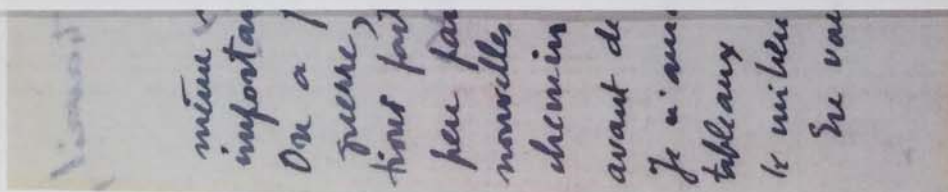 même
importan
On a
guerre,
tions fort
peu par
nouvelles
chemin
avant de
Je n'ai
tableaux
le milieu
En vou